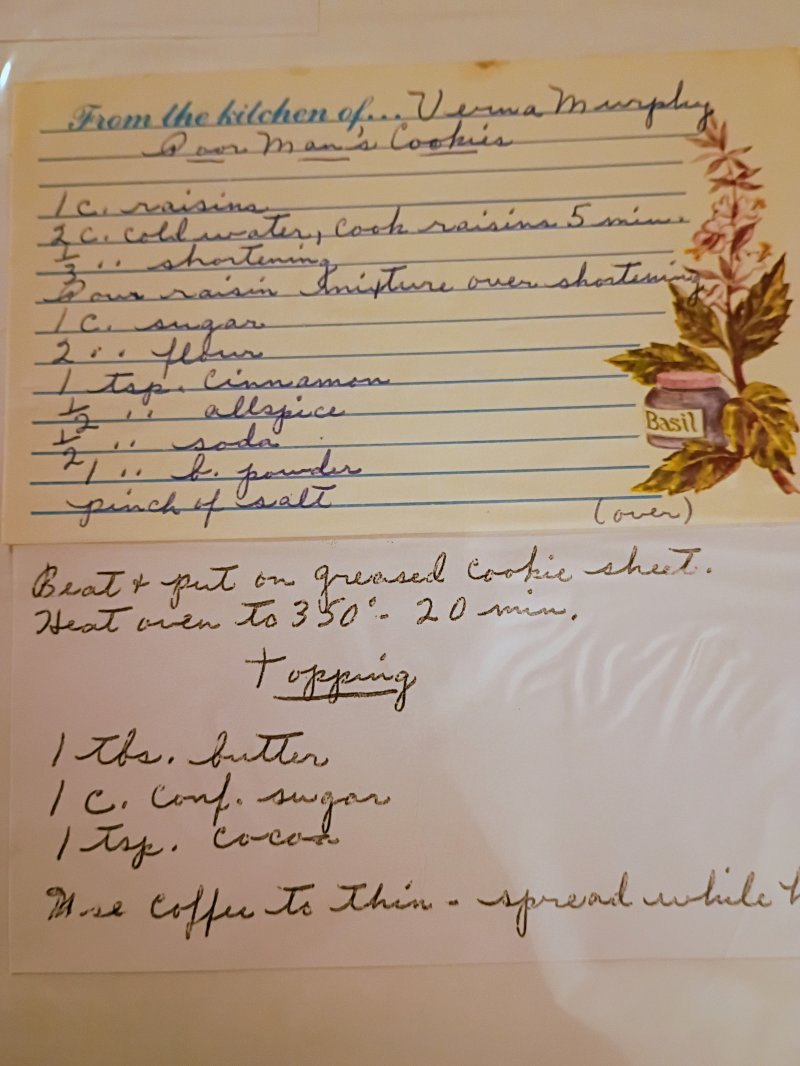 From the kitchen of... Verna Murphy
Poor Man's Cookies
1 c. raisins
2 c. cold water, cook raisins 5 min.
1/3 " shortening
Pour raisin mixture over shortening
1 c. sugar
2 " flour
1 tsp. cinnamon
1/2 " allspice
1/2 " soda
1 " b. powder
pinch of salt
Basil
(over)
Beat & put on greased cookie sheet.
Heat oven to 350° - 20 min.
Topping
1 tbs. butter
1 c. conf. sugar
1 tsp. cocoa
Use coffee to thin - spread while